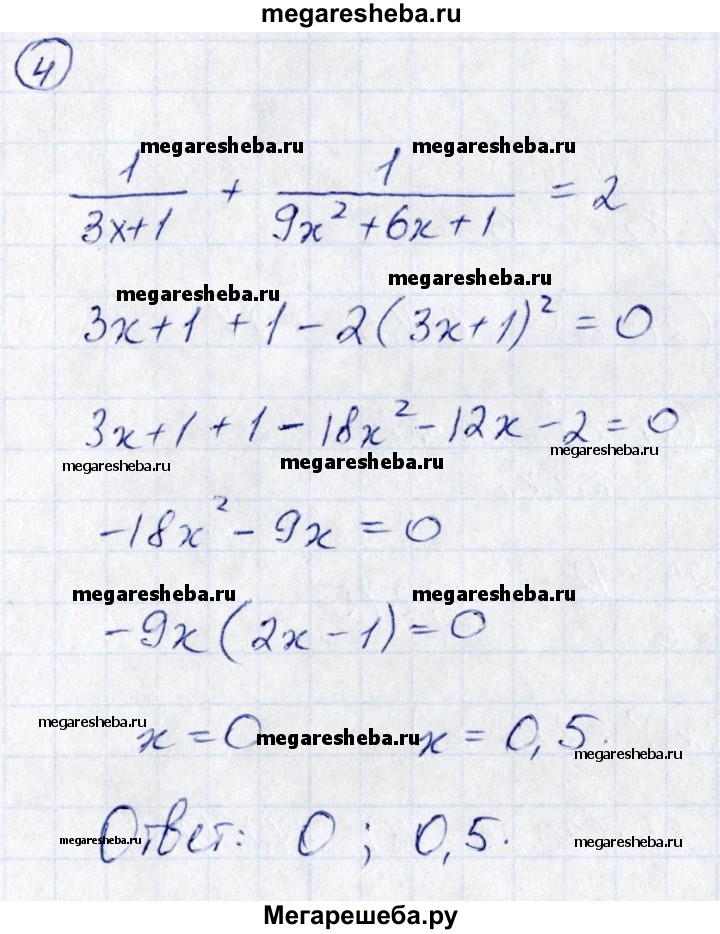 megaresheba.ru
4
megaresheba.ru megaresheba.ru
1/(3x+1) + 1/(9x² + 6x + 1) = 2
megaresheba.ru megaresheba.ru
3x+1 + 1 - 2(3x+1)² = 0
3x+1 + 1 - 18x² - 12x - 2 = 0
megaresheba.ru megaresheba.ru megaresheba.ru
-18x² - 9x = 0
megaresheba.ru megaresheba.ru
-9x(2x - 1) = 0
megaresheba.ru megaresheba.ru megaresheba.ru
x = 0 x = 0,5.
megaresheba.ru megaresheba.ru
Ответ: 0; 0,5.
Мегарешеба.ру